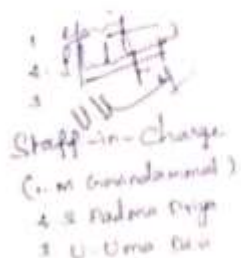 1
2.
3
Staff-in-Charge
(1. M Govindammal)
2 S Padma Priya
3 U. Uma Devi